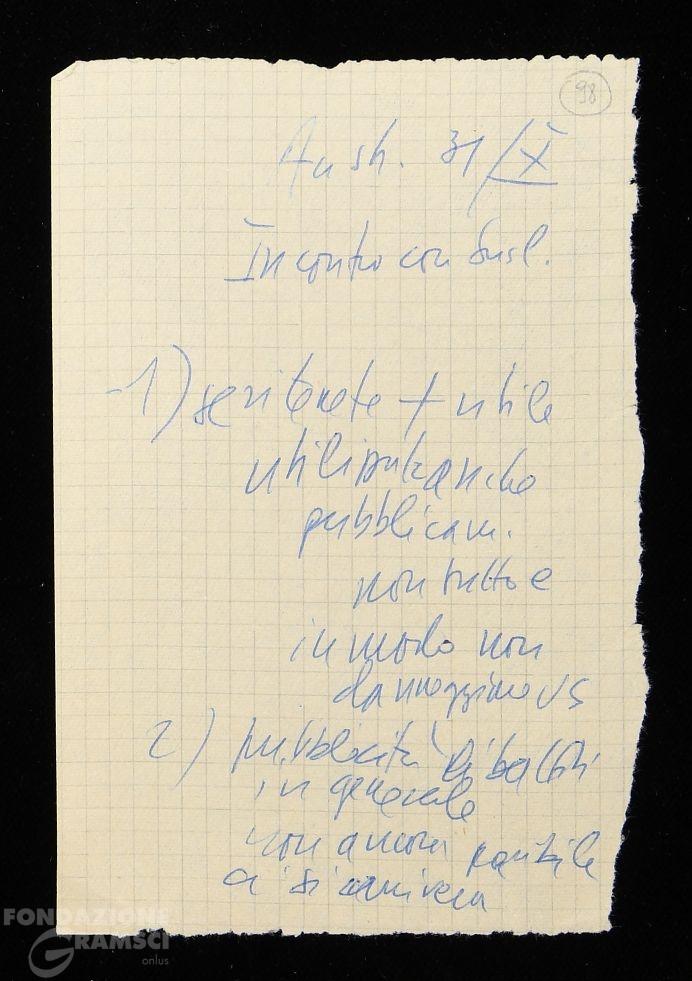 98
Aush. 31/X
Incontro con Susl.
1) se ritenete + utile
utilizzate anche
pubblicam.
non tutto e
in modo non
danneggino US
2) pubblicità dibattiti
in generale
non ancora possibile
ci si arriverà
FONDAZIONE
GRAMSCI
onlus